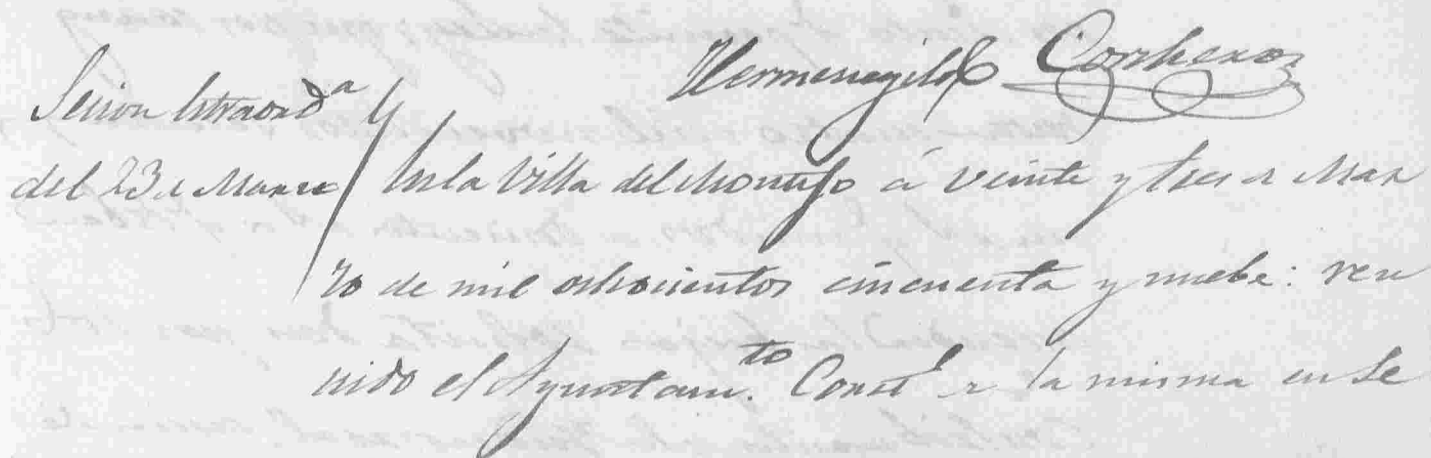 Hermenegildo Corcheroz
Secion Estraordª
del 23 de Marzo / En la Villa del Montijo á veinte y tres de Mar
zo de mil ochocientos cincuenta y nuebe: reu
nido el Ayuntam.to Const.l de la misma en Se